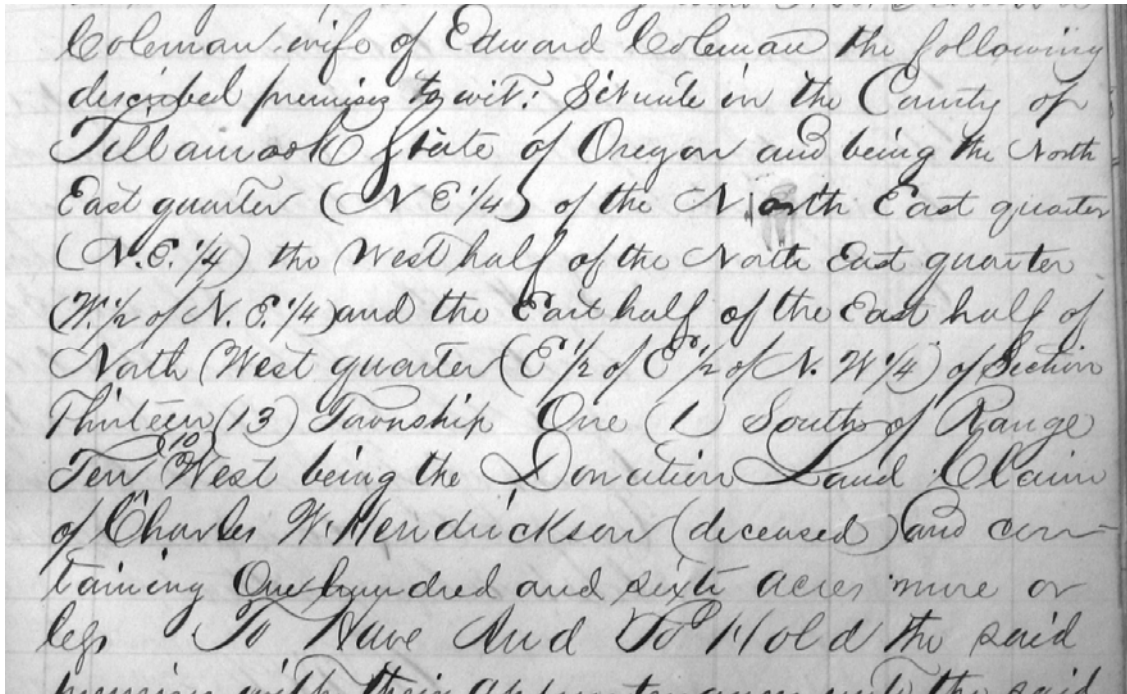 Coleman wife of Edward Coleman the following
described premises to wit: Situate in the County of
Tillamook State of Oregon and being the North
East quarter (N E 1/4) of the North East quarter
(N.E. 1/4) the West half of the North East quarter
(W. 1/2 of N. E. 1/4) and the East half of the East half of
North West quarter (E 1/2 of E 1/2 of N. W 1/4) of Section
Thirteen (13) Township One (1) South of Range
Ten (10) West being the Donation Land Claim
of Charles W. Hendrickson (deceased) and con-
taining One hundred and sixty acres more or
less To Have And To Hold the said
premises with their appurtenances unto the said